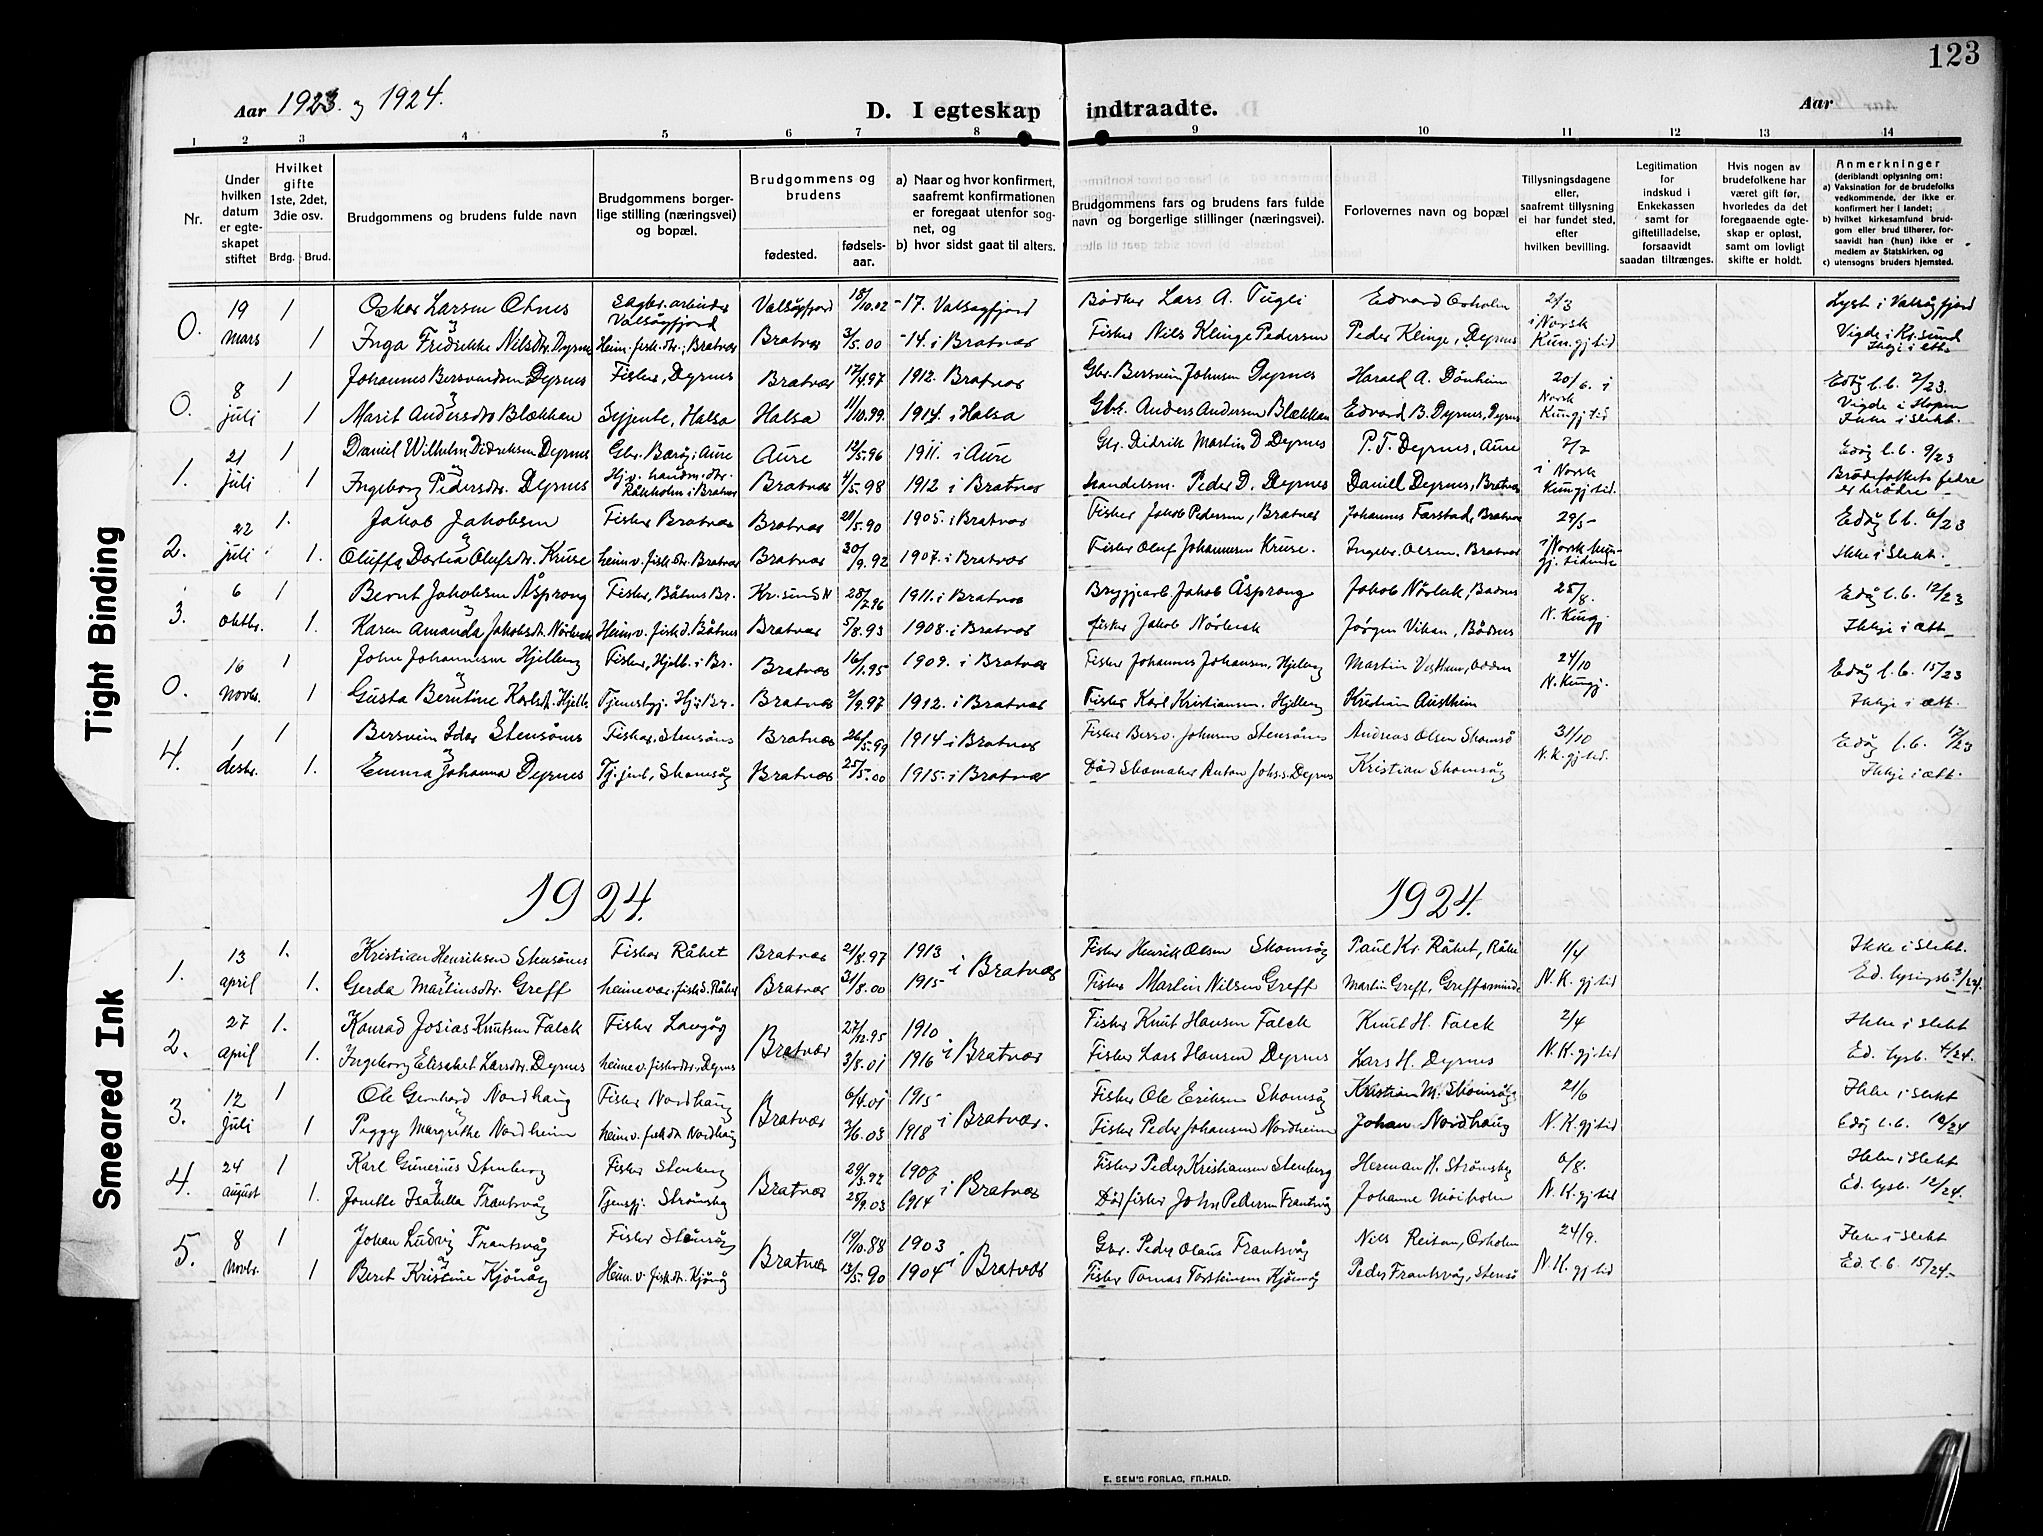 123
Aar 1923. og 1924.
D. I egteskap indtraadte.
Aar
1 2 3 4 5 6 7 8 9 10 11 12 13 14
Nr.
Under hvilken datum er egteskapet stiftet
Hvilket gifte 1ste, 2det, 3die osv.
Brdg. Brud.
Brudgommens og brudens fulde navn
Brudgommens borgerlige stilling (næringsvei) og bopæl.
Brudgommens og brudens
fødested.
fødselsaar.
a) Naar og hvor konfirmert, saafremt konfirmationen er foregaat utenfor sognet, og
b) hvor sidst gaat til alters.
Brudgommens fars og brudens fars fulde navn og borgerlige stillinger (næringsvei).
Forlovernes navn og bopæl
Tillysningsdagene eller, saafremt tillysning ei har fundet sted, efter hvilken bevilling.
Legitimation for indskud i Enkekassen samt for giftetilladelse, forsaavidt saadan tiltrænges.
Hvis nogen av brudefolkene har været gift før, hvorledes da det foregaaende egteskap er opløst, samt om lovligt skifte er holdt.
Anmerkninger (deriblandt oplysning om:
a) Vaksination for de brudefolks vedkommende, der ikke er konfirmert her i landet;
b) hvilket kirkesamfund brudgom eller brud tilhører, forsaavidt han (hun) ikke er medlem av Statskirken, og
c) utensogns bruders hjemsted.
0. 19 1 Oskar Larsen Otnes Sagbr. arbeider Valsøyfjord Valsøyfjord 18/10.02 -17. Valsøyfjord Bødker Lars A. Fugli Edvard Orholm 2/3 Lyst i Valsøyfjord
mars 1 Inga Fredrikke Nilsdtr. Dyrnes Heim. fisk. dtr., Bratvær Bratvær 3/5.00 -14. i Bratvær Fisker Nils Klinge Pedersen Peder Klinge, Dyrnes i Norsk Kun.gj.tid Vigde i Kr.sund Ikkje i ætt.
0. 8 1 Johannes Bersvendsen Dyrnes Fisker, Dyrnes Bratvær 17/4.97 1912. Bratvær Gbr. Bersvein Johnsen Dyrnes Harald A. Dönheim 20/6. i Edøy l.b. 7/23.
juli 1 Marit Andersdtr Blækkan Syjente, Halsa Halsa 11/10.99. 1914. i Halsa Gbr. Anders Andersen Blækkan Edvard B. Dyrnes, Dyrnes Norsk Kungj.tid Vigde i Hopen Ikke i slekt.
1. 21 1 Daniel Wilhelm Didriksen Dyrnes Gbr. Barøy i Aure Aure 12/5.96 1911. i Aure Gbr. Didrik Martin D Dyrnes P. T. Dyrnes, Aure 7/7 Edøy l.b. 9/23
juli 1 Ingeborg Pedersdtr. Dyrnes Hj.v. handm. dtr. Råkholm i Bratvær Bratvær 4/5.98 1912 i Bratvær Handelsm. Peder D. Dyrnes Daniel Dyrnes, Bratvær i Norsk Kungj.tid. Brødefolkets fedre er brødre
2. 22 1. Jakob Jakobsen Fisker Bratvær Bratvær 21/5.90 1905. i Bratvær Fisker Jakob Pedersen, Bratvær Johannes Farstad, Bratvær 29/5- Edøy l.b. 6/23
juli 1. Oluffa Dortea Olufsdtr. Kruse heim v. fisk. dtr. Bratvær Bratvær 30/9.92 1907. i Bratvær Fisker Oluf Johannesen Kruse. Ingebr. Olsen. Bratvær i Norsk kungj. tidende Ikke i slekt.
3. 6 1 Bernt Jakobsen Åsprong Fisker, Båtnes Br. Kr. sund N 28/7.96 1911. i Bratvær Bryggjearb. Jakob Åsprong Jakob Nörbek, Badnes 25/8. Edøy l.b. 12/23
oktbr. 1. Karen Amanda Jakobsdtr. Nörbek Heim v. fisk d. Båtnes Bratvær 5/8.93 1908. i Bratvær fisker Jakob Nörbek Jørgen Vikan, Bådnes N. Kungj. Ikkje i ætt
0. 16 1 John Johannesen Hjelleng Fisker, Hjell. i Br. Bratvær 16/1.95 1909. i Bratvær Fisker Johannes Johansen, Hjelleng Martin Vestheim, Odden 24/10 Edøy l.b. 15/23
Novbr. 1 Gusta Berntine Karlsdtr. Hjelle Tjenestpj. Hj. i Br. Bratvær 2/9.97 1912. i Bratvær Fisker Karl Kristiansen. Hjelleng Kristian Austheim N. Kungj. Ikkje i ætt.
4. 1 1 Bersvein Idar Stensönes Fisker, Stensönes Bratvær 26/5.99 1914 i Bratvær Fisker Bersv. Johnsen Stensönes Andreas Olsen Skomsö 31/10 Edøy l.b. 17/23
desbr. 1. Emma Johanna Dyrnes Tj. jent, Skomsöy Bratvær 25/5.00 1915 i Bratvær Död Skomaker Anton Johs. Dyrnes Kristian Skomsöy N.K.gj.tid. Ikkje i ætt.
1924. 1924.
1. 13 1. Kristian Henriksen Stensönes Fisker Råket Bratvær 21/8.97 1913 i Bratvær Fisker Henrik Olsen Skomsöy Paul Kr. Råket, Råke 1/4 Ikke i slekt.
april 1. Gerda Martinsdtr. Greff heimevær. fisk d. Råket Bratvær 31/8.00 1915 Fisker Martin Nilsen Greff Martin Greff, Greffsminde N.K.gj.tid Ed. lysingsb. 3/24.
2. 27 1. Konrad Josias Knutsen Falck Fisker Langöy Bratvær 27/12.95 1910 i Bratvær Fisker Knut Hansen Falck Knut H. Falck 2/4 Ikke i slekt
april 1. Ingeborg Elisabet Larsdtr. Dyrnes heime v. fiskdtr., Dyrnes 3/8.01 1916 Fisker Lars Hansen Dyrnes Lars H. Dyrnes N.K.gj.tid Ed. lysb. 4/24.
3. 12 1 Ole Gerhard Nordhaug Fisker Nordhaug Bratvær 6/4.01 1915 i Bratvær. Fisker Ole Eriksen Skomsöy Kristian M. Skomsöy 21/6 Ikke i slekt
juli 1 Peggy Margrethe Nordheim heim v. fisk dtr. Nordhaug 3/6.03 1918 Fisker Peder Johansen Nordheim Johan Nordhaug N.K.gj.tid Edøy l.b. 10/24
4. 24 1 Karl Gunerius Stenberg Fisker Stenberg Bratvær 29/3.92 1907 i Bratvær Fisker Peder Kristiansen Stenberg Herman H. Strömsby 6/8. Ikke i slekt
august 1. Jonette Isabella Frantsvåg Tjenespj. Strömsby 25/9.03 1914 Död fisker John Pedersen Frantsvåg Johanne Moisholm N.K.gj.tid Ed. lysb. 12/24.
5. 8 1 Johan Ludvig Frantsvåg Fisker Stensöy Bratvær 19/10.88 1903 i Bratvær Gbr. Peder Olaus Frantsvåg Nils Reitan, Orholm 24/9. Ikke i slekt
Novbr. 1 Beret Kristine Kjönöy Heim v. fisk dtr. Kjönöy 13/5.90 1904 Fisker Tomas Torstinsen Kjönöy Peder Frantsvåg, Stensö N.K.gj.tid Ed. l.b. 15/24.-
E. SEM'S FORLAG, FR.HALD.
Tight Binding
Smeared Ink